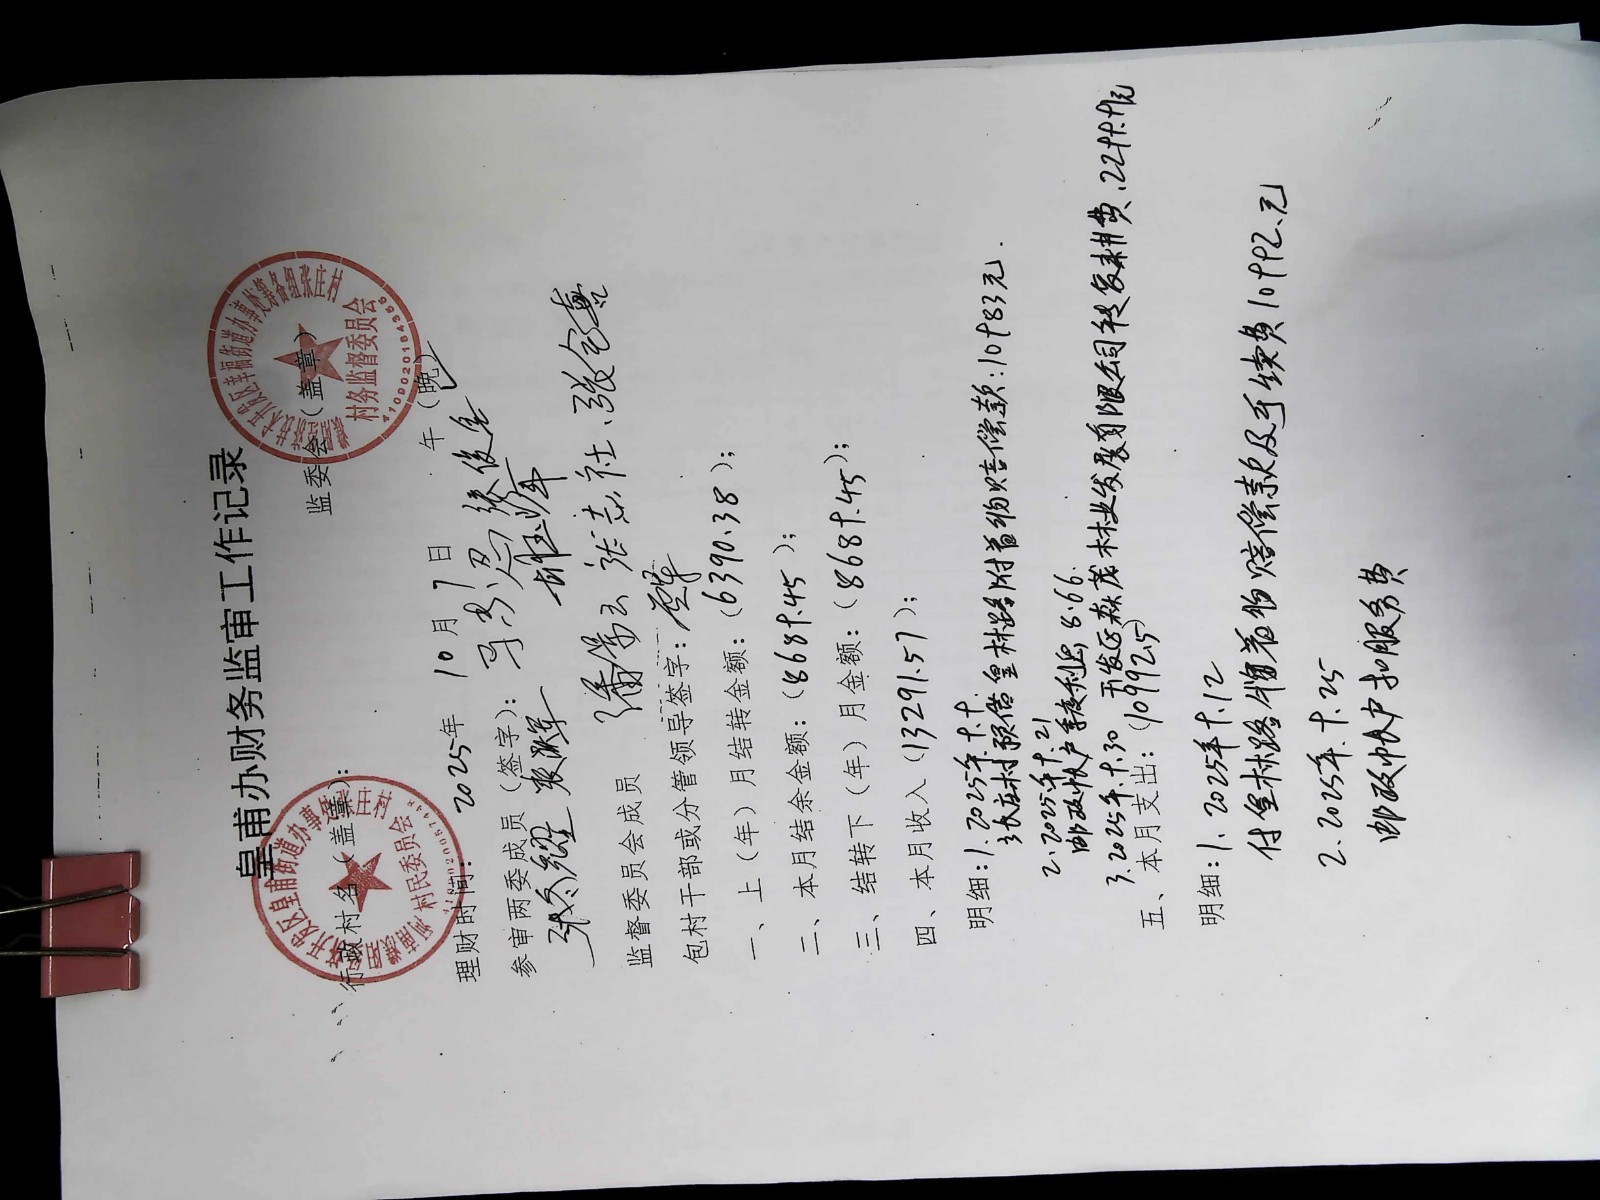 皇甫办财务监审工作记录
行政村名（盖章）： 监委会（盖章）
村民委员会
村务监督委员会
理财时间：2025年 10月7日 年（晚）
参审两委成员（签字）：
监督委员会成员 张志社、
包村干部或分管领导签字：
一、上（年）月结转金额：（6390.38）；
二、本月结余金额：（8689.45）；
三、结转下（年）月金额：（8689.45）；
四、本月收入（13291.57）；
明细：1.2025年.9.9
张庄村预借皇林路附着物赔偿款：10983元.
2.2025年9.21
邮政帐户季度利息8.66.
3.2025年.9.30 森茂林业发展有限公司 复耕费.2299.91元
五、本月支出：（10992.5）
明细：1.2025年9.12
付皇林路附着物赔偿款及手续费10992.元
2.2025年.9.25
邮政帐户扣服务费